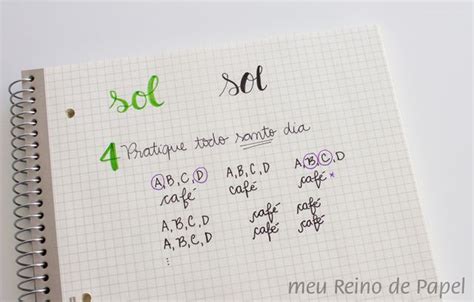 sol sol
4 Pratique todo santo dia
A, B, C, D A, B, C, D A, B, C, D
café café café x
A, B, C, D café café
A, B, C, D café café
⋮
meu Reino de Papel